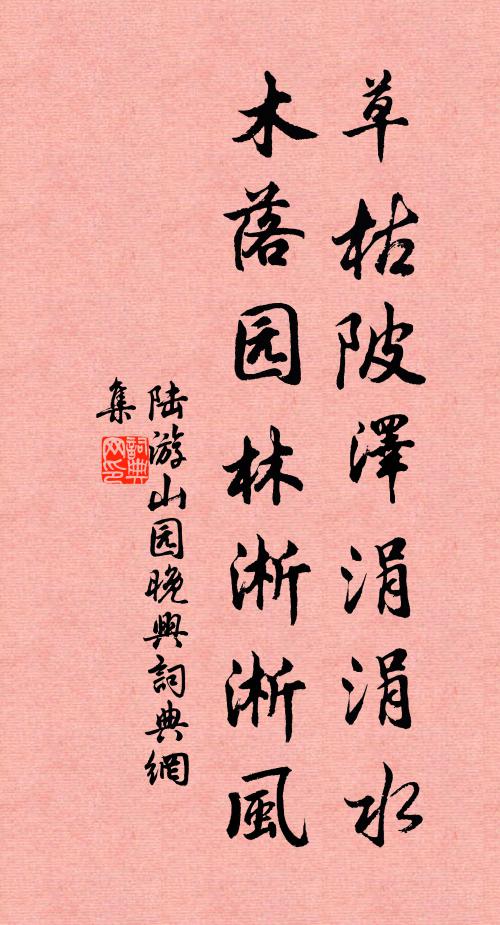 草枯陂澤涓涓水
木落园林淅淅風
陆游山园晚興詞典網
集
詞典网印